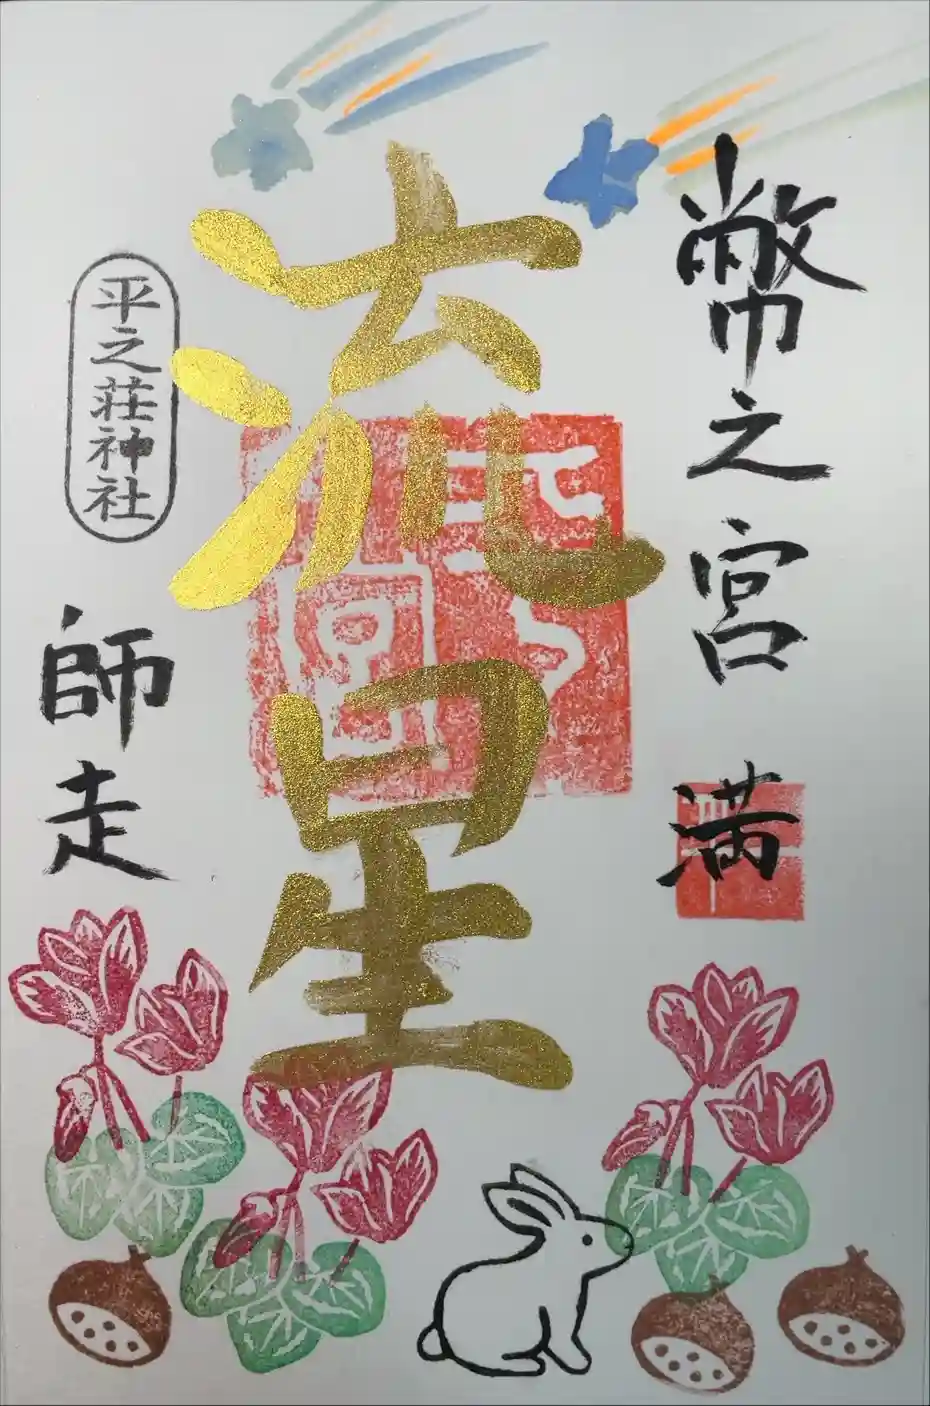 幣之宮 満
流星
平之荘神社
師走